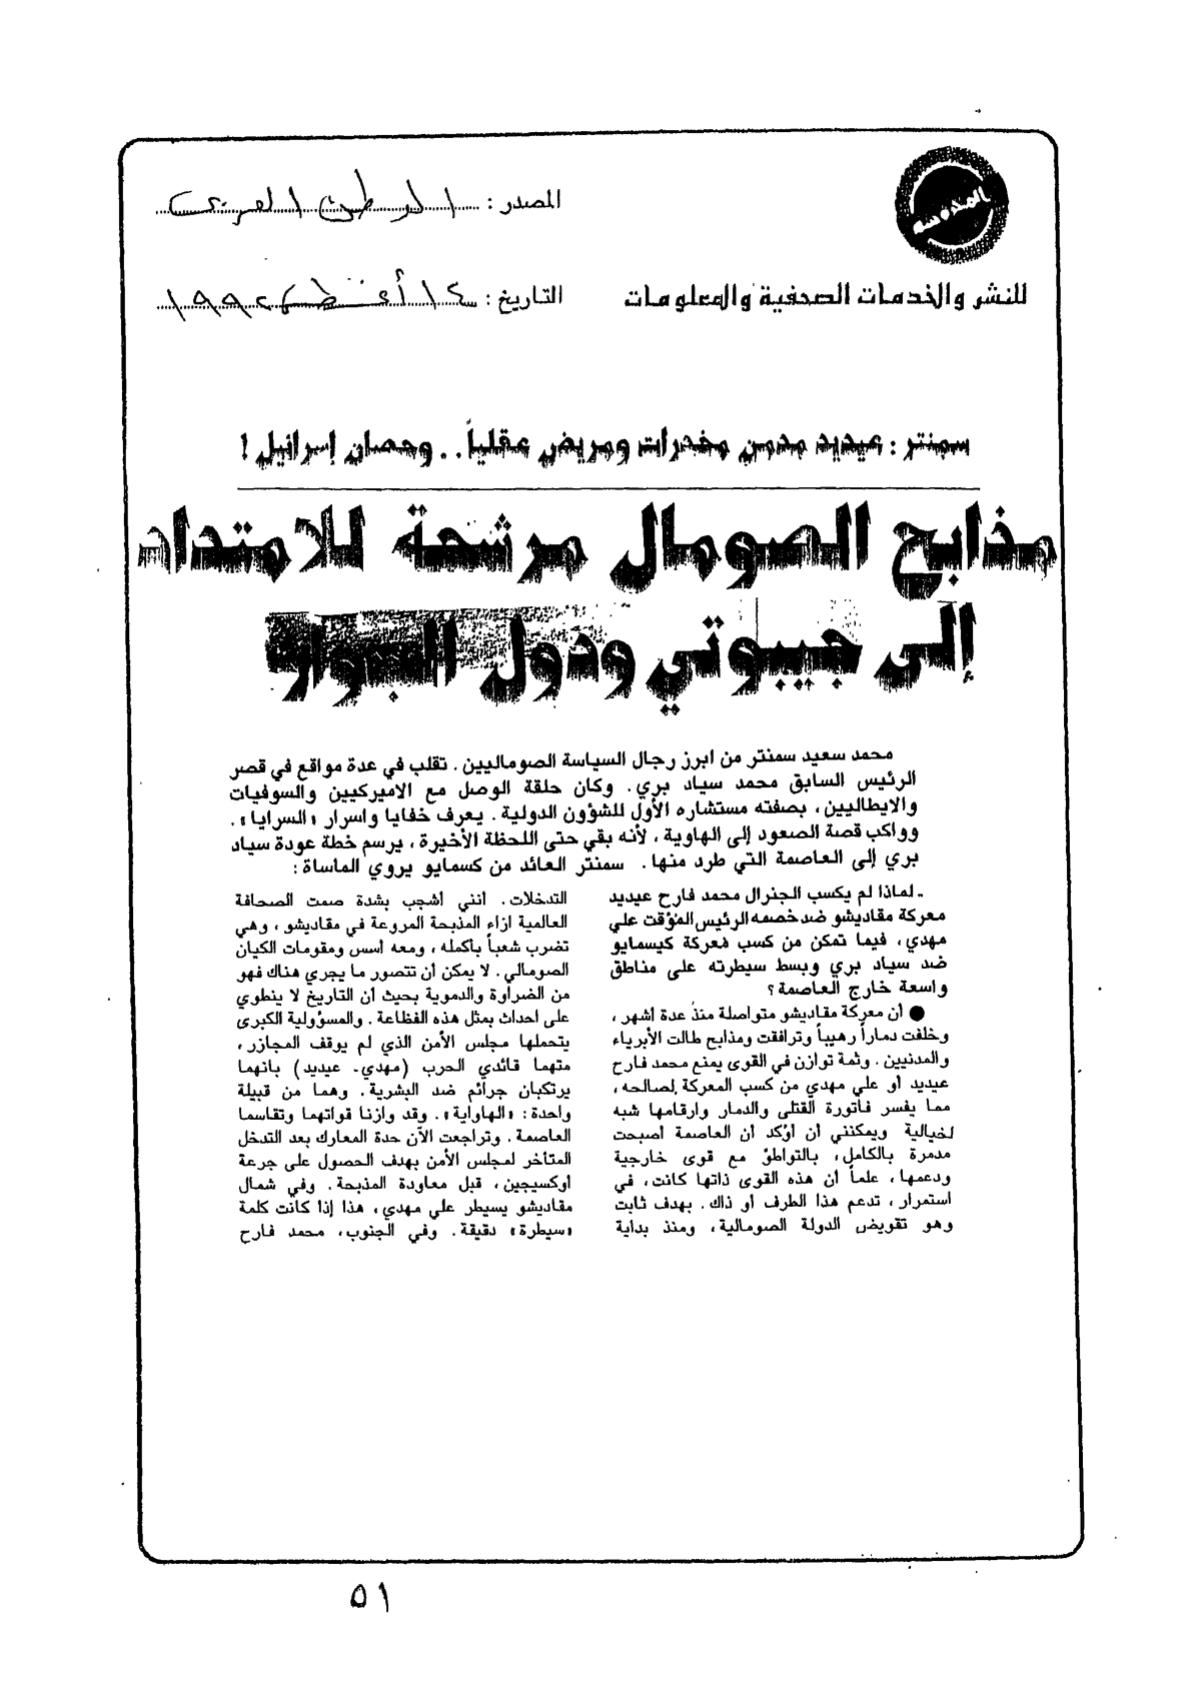 المصدر : الوطن العربي
للنشر والخدمات الصحفية والمعلومات
التاريخ : ١٤ أغسطس ١٩٩٢
سمنتر : عيديد مدمن مخدرات ومريض عقلياً . . وحصان إسرائيل !
مذابح الصومال مرشحة للامتداد
إلى جيبوتي ودول الجوار
محمد سعيد سمنتر من ابرز رجال السياسة الصوماليين . تقلب في عدة مواقع في قصر
الرئيس السابق محمد سياد بري . وكان حلقة الوصل مع الاميركيين والسوفيات
والايطاليين ، بصفته مستشاره الأول للشؤون الدولية . يعرف خفايا واسرار «السرايا» .
وواكب قصة الصعود إلى الهاوية ، لأنه بقي حتى اللحظة الأخيرة ، يرسم خطة عودة سياد
بري إلى العاصمة التي طرد منها . سمنتر العائد من كسمايو يروي الماساة :
ـ لماذا لم يكسب الجنرال محمد فارح عيديد
معركة مقاديشو ضد خصمه الرئيس المؤقت علي
مهدي ، فيما تمكن من كسب معركة كيسمايو
ضد سياد بري وبسط سيطرته على مناطق
واسعة خارج العاصمة ؟
● أن معركة مقاديشو متواصلة منذ عدة اشهر ،
وخلفت دماراً رهيباً وترافقت ومذابح طالت الأبرياء
والمدنيين . وثمة توازن في القوى يمنع محمد فارح
عيديد أو علي مهدي من كسب المعركة لصالحه ،
مما يفسر فاتورة القتلى والدمار وارقامها شبه
لخيالية ويمكنني أن أؤكد أن العاصمة أصبحت
مدمرة بالكامل ، بالتواطؤ مع قوى خارجية
ودعمها ، علماً أن هذه القوى ذاتها كانت ، في
استمرار ، تدعم هذا الطرف أو ذاك . بهدف ثابت
وهو تقويض الدولة الصومالية ، ومنذ بداية
التدخلات . انني أشجب بشدة صمت الصحافة
العالمية ازاء المذبحة المروعة في مقاديشو ، وهي
تضرب شعباً بأكمله ، ومعه اسس ومقومات الكيان
الصومالي . لا يمكن أن تتصور ما يجري هناك فهو
من الضراوة والدموية بحيث أن التاريخ لا ينطوي
على احداث بمثل هذه الفظاعة . والمسؤولية الكبرى
يتحملها مجلس الأمن الذي لم يوقف المجازر ،
متهما قائدي الحرب (مهدي ـ عيديد) بانهما
يرتكبان جرائم ضد البشرية . وهما من قبيلة
واحدة : «الهاواية» . وقد وازنا قواتهما وتقاسما
العاصمة . وتراجعت الآن حدة المعارك بعد التدخل
المتأخر لمجلس الأمن بهدف الحصول على جرعة
اوكسيجين ، قبل معاودة المذبحة . وفي شمال
مقاديشو يسيطر علي مهدي ، هذا إذا كانت كلمة
«سيطرة» دقيقة . وفي الجنوب ، محمد فارح
٥١